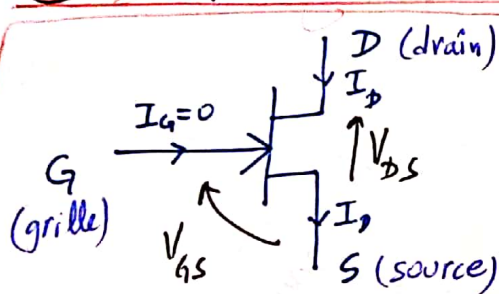 D (drain)
I_D
I_G=0
V_DS
G
(grille)
V_GS
I_D
S (source)